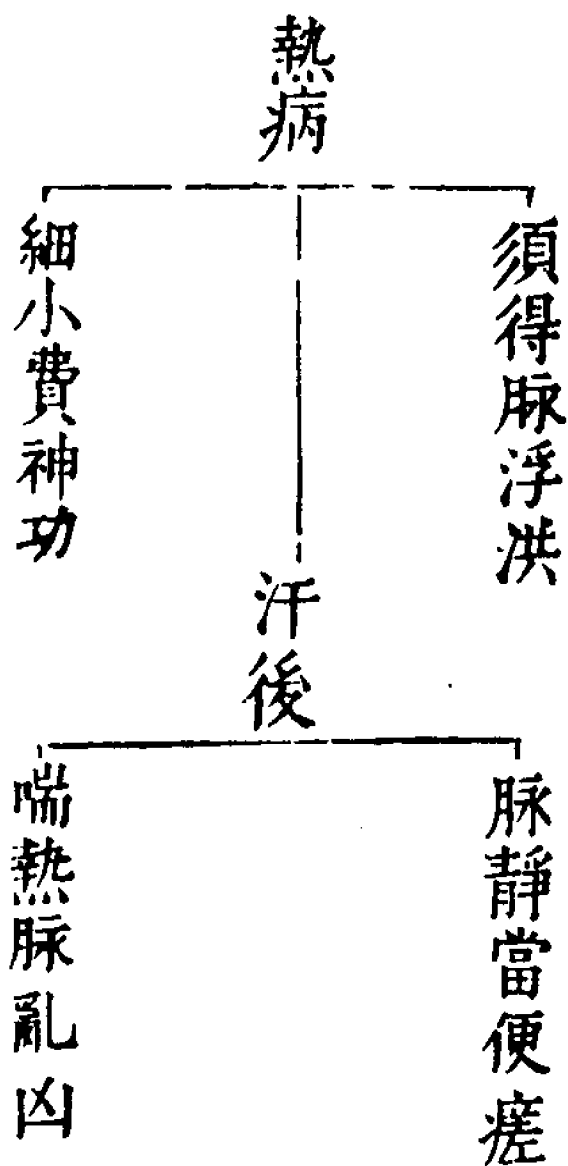 熱病
須得脉浮洪
細小費神功
汗後
脉靜當便瘥
喘熱脉亂凶